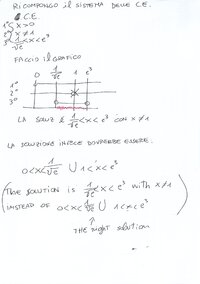 RICOMPONGO il SISTEMA DELLE C.E.
C.E.
1° x>0
2° x≠1
3° 1/√e <x<e³
FACCIO il GRAFICO
0 1/√e 1 e³
1°
2°
3°
LA SOLUZ È 1/√e <x<e³ CON x≠1
LA SOLUZIONE INVECE DOVREBBE ESSERE
0<x<1/√e ∪ 1<x<e³
(THE SOLUTION IS 1/√e <x<e³ with x≠1
INSTEAD OF 0<x<1/√e ∪ 1<x<e³)
THE RIGHT SOLUTION